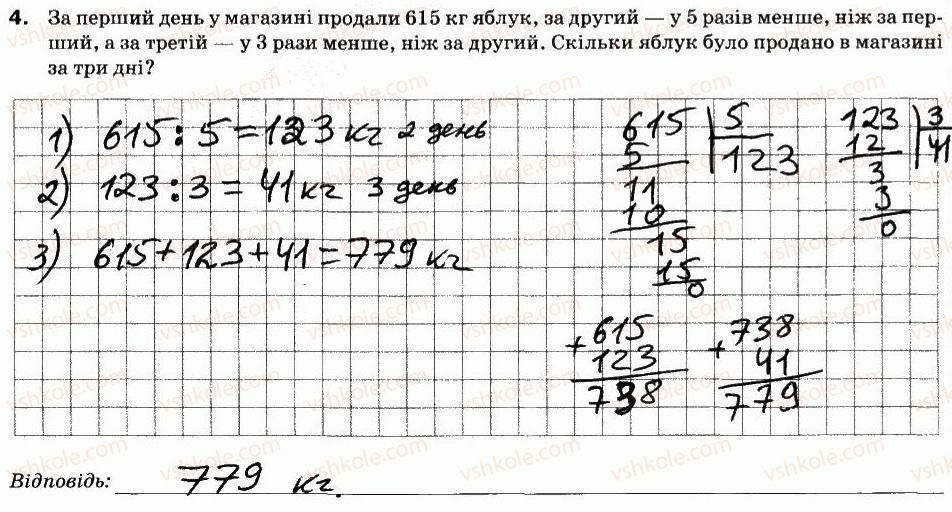 4. За перший день у магазині продали 615 кг яблук, за другий — у 5 разів менше, ніж за пер-
ший, а за третій — у 3 рази менше, ніж за другий. Скільки яблук було продано в магазині
за три дні?
1) 615 : 5 = 123 кг 2 день
2) 123 : 3 = 41 кг 3 день
3) 615 + 123 + 41 = 779 кг
615 | 5
5 | 123
11
10
15
15
0
123 | 3
12 | 41
3
3
0
+ 615
123
738
+ 738
41
779
Відповідь: 779 кг.
vshkole.com